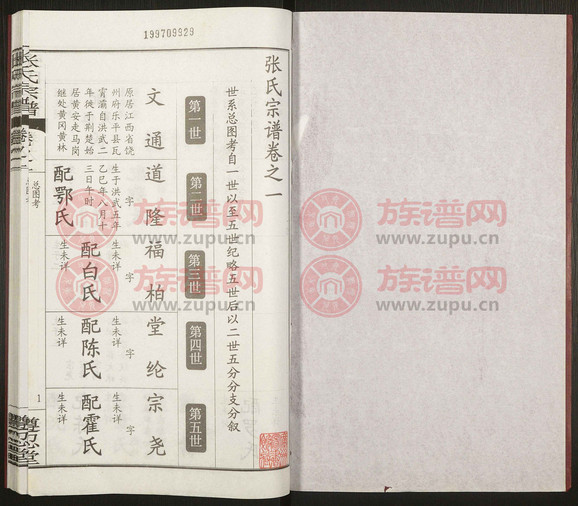 199709929
张氏宗谱卷之一
世系总图考自一世以至五世纪略五世后以二世五分分支分叙
第一世
第二世
第三世
第四世
第五世
文通
道隆
福柏
堂纶
宗尧
原居江西省饶
州府乐平县瓦
宵灞自洪武二
年徙于荆楚始
居黄安走马岗
继处黄冈黄林
字
生于洪武五年
乙巳年八月十
三日午时
配鄂氏
生未详
字
生未详
配白氏
生未详
字
生未详
配陈氏
生未详
字
生未详
配霍氏
生未详
张氏宗谱
卷之一
总图考
1
族谱网
www.zupu.cn
族谱网
www.zupu.cn
族谱网
www.zupu.cn
族谱网
www.zupu.cn